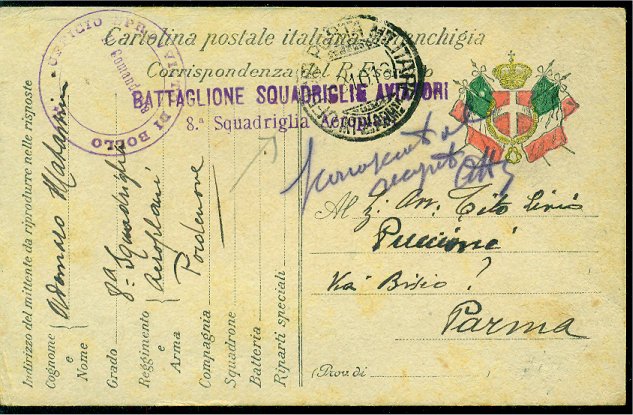 Cartolina postale italiana in franchigia
Corrispondenza del R. Esercito
BATTAGLIONE SQUADRIGLIE AVIATORI
8.a Squadriglia Aeroplani
UFFICIO DI BOLLO
POSTA MILITARE
Sconosciuto al
Al Sig. Av. Tito Livio
Puccioni
Via Bixio ?
Parma
(Prov. di
Indirizzo del mittente da riprodurre nelle risposte
Cognome e Nome
Grado 8a Squadriglia
Reggimento e Arma Aeroplani
Pordenone
Compagnia
Squadrone
Batteria
Riparti speciali